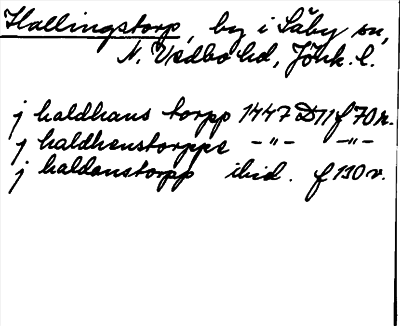 Hallingstorp, by i Säby sn,
N. Vedbo hd, Jönk. l.
j haldhans torpp 1447 D11 f 70 r.
j haldhenstorppe -"- -"-
j haldanstorpp ibid. f 110 v.